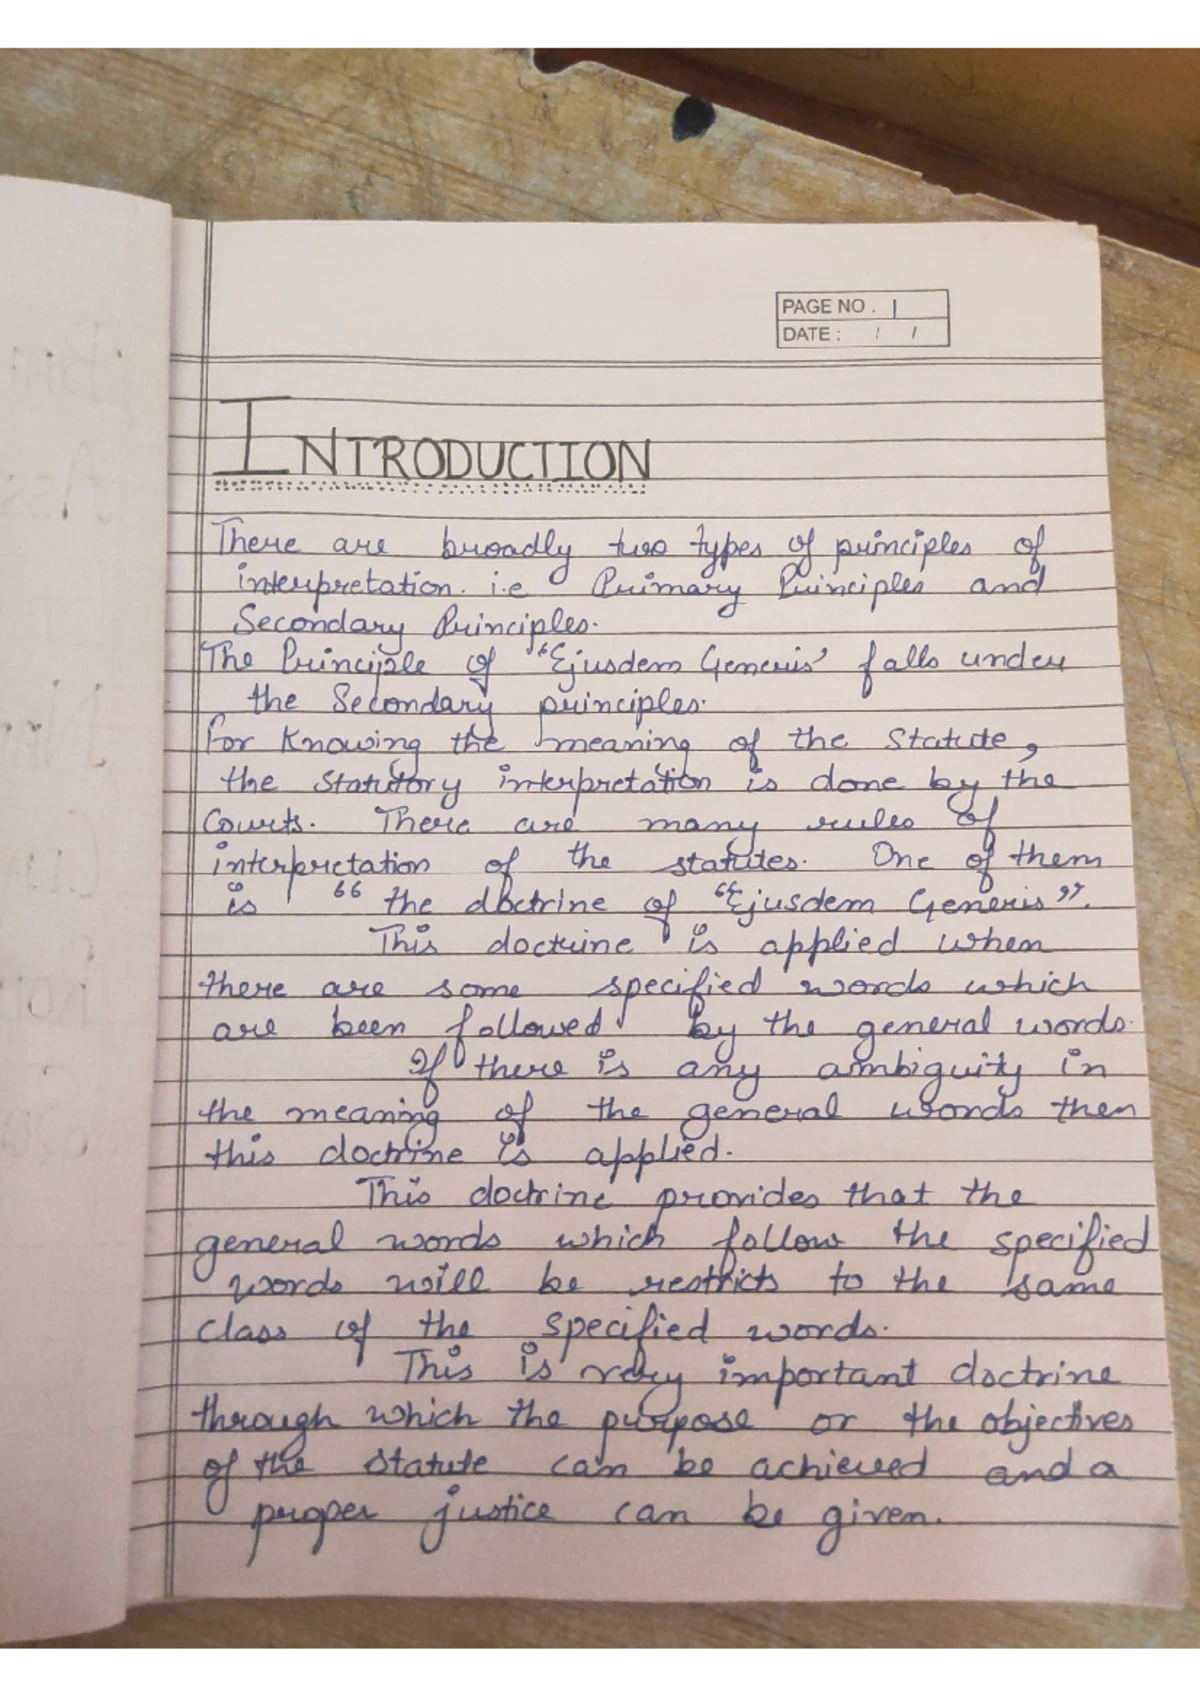 PAGE NO. 1
DATE : / /
INTRODUCTION
There are broadly two types of principles of
interpretation. i.e Primary Principles and
Secondary Principles.
The Principle of "Ejusdem Generis' falls under
the Secondary principles.
For Knowing the meaning of the Statute,
the Statutory interpretation is done by the
Courts. There are many rules of
interpretation of the statutes. One of them
is " the doctrine of "Ejusdem Generis".
This doctrine is applied when
there are some specified words which
are been followed by the general words.
If there is any ambiguity in
the meaning of the general words then
this doctrine is applied.
This doctrine provides that the
general words which follow the specified
words will be restricts to the same
class of the specified words.
This is very important doctrine
through which the purpose or the objectives
of the statute can be achieved and a
proper justice can be given.